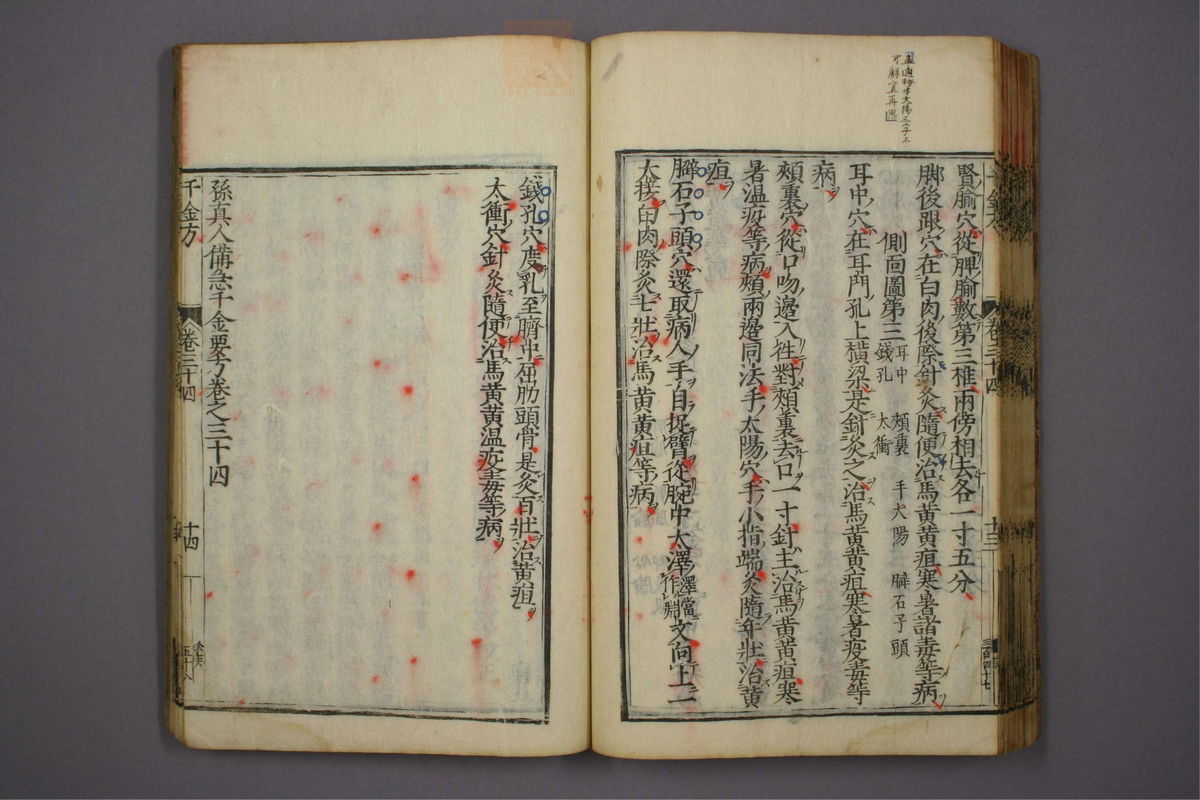 賢腧穴從脾腧數第三椎兩傍相去各一寸五分
脚後跟穴在白肉後際針灸隨便治馬黃黃疸寒暑諸毒等病
側靣圖第三 耳中 頰裏 手太陽 臂石子頭
錢孔 太衝
耳中穴在耳門孔上横梁是針灸之治馬黃黃疸寒暑疫毒等
病
頰裏穴從口吻邊入徃對頰裏去口一寸針主治馬黃黃疸寒
暑温疫等病頰兩邊同法手太陽穴手小指端灸隨年壯治黃
疸
臂石子頭穴還取病人手自捉臂從腕中太澤澤當作淵文向上一
太接白肉際灸七壯治馬黃黃疸等病
錢孔穴度乳至臍中屈肋頭骨是灸百壯治黃疸
太衝穴針灸隨便治馬黃黃温疫毒等病
孫真人備急千金要方卷之三十四
千金方 卷三十四 十四
卷三十四 十三